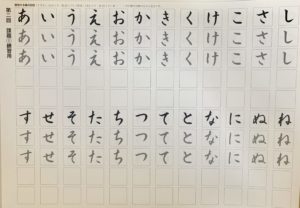 あ い う え お か き く け こ さ し
あ い う え お か き く け こ さ し
あ い う え お か き く け こ さ し
す せ そ た ち つ て と な に ぬ ね
す せ そ た ち つ て と な に ぬ ね
す せ そ た ち つ て と な に ぬ ね
課題 練習用